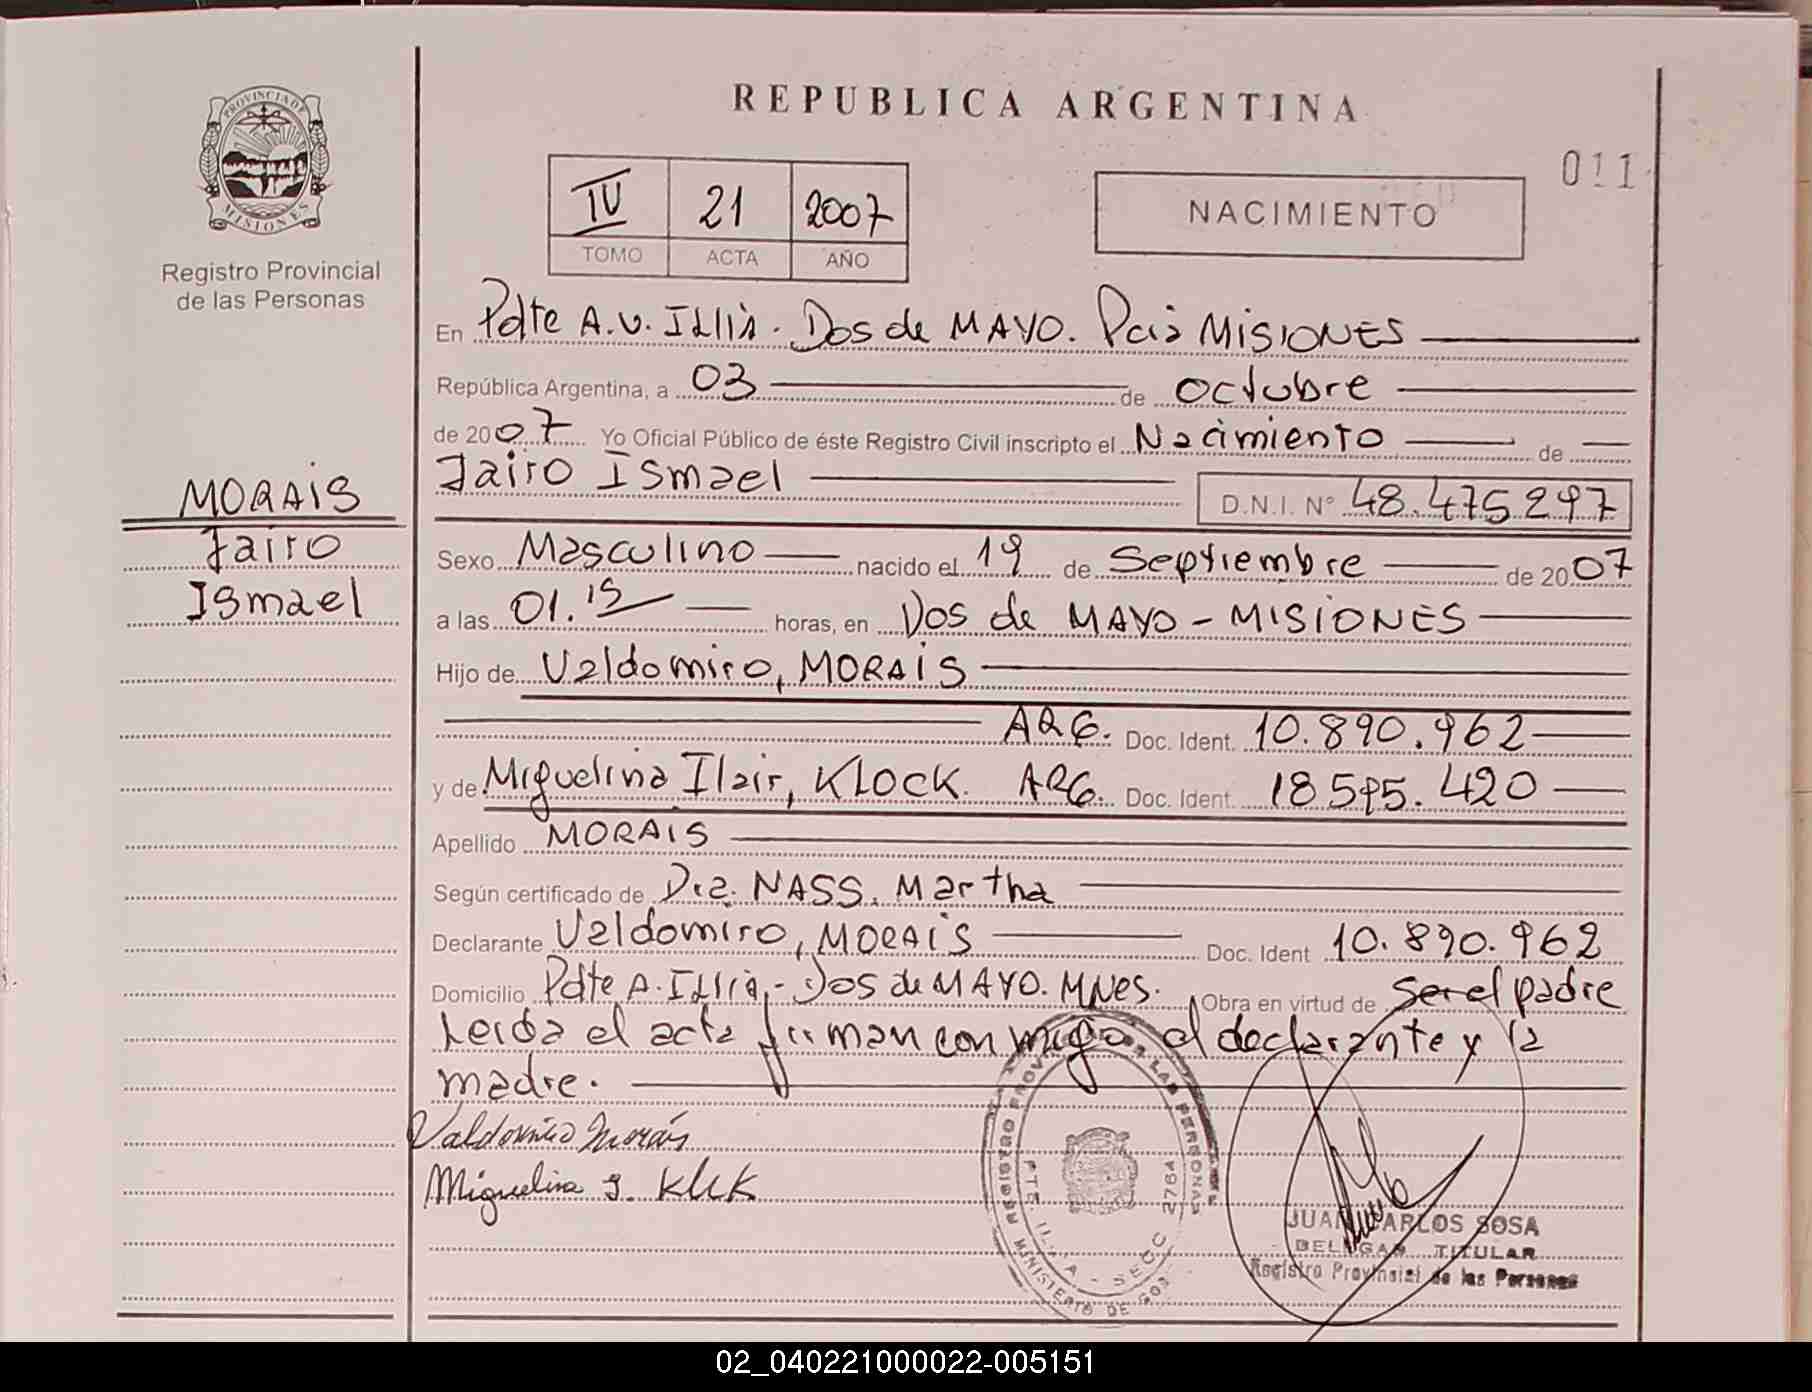 REPUBLICA ARGENTINA
011
PROVINCIA DE MISIONES
Registro Provincial
de las Personas
IV 21 2007
TOMO ACTA AÑO
NACIMIENTO
En Pdte A.U. ILLIA. Dos de MAYO. Pcia MISIONES
República Argentina, a 03 de octubre
de 2007 Yo Oficial Público de éste Registro Civil inscripto el Nacimiento de
Jairo Ismael D.N.I. Nº 48.475297
MORAIS
Jairo
Ismael
Sexo Masculino nacido el 19 de Septiembre de 2007
a las 01.15 horas, en Dos de MAYO - MISIONES
Hijo de Valdomiro, MORAIS
ARG. Doc. Ident. 10.890.962
y de Miguelina Ilair, KLOCK. ARG. Doc. Ident. 18595.420
Apellido MORAIS
Según certificado de Dra. NASS, Martha
Declarante Valdomiro, MORAIS Doc. Ident 10.890.962
Domicilio Pdte A. ILLIA - Dos de MAYO. MNes. Obra en virtud de ser el padre
Leida el acta firman con migo el declarante y la
madre.
Valdomiro Morais
Miguelina I. Klck
REGISTRO PROVINCIAL DE LAS PERSONAS
MINISTERIO DE GOB
SECC 2764
JUAN CARLOS SOSA
DELEGADO TITULAR
Registro Provincial de las Personas
02_040221000022-005151